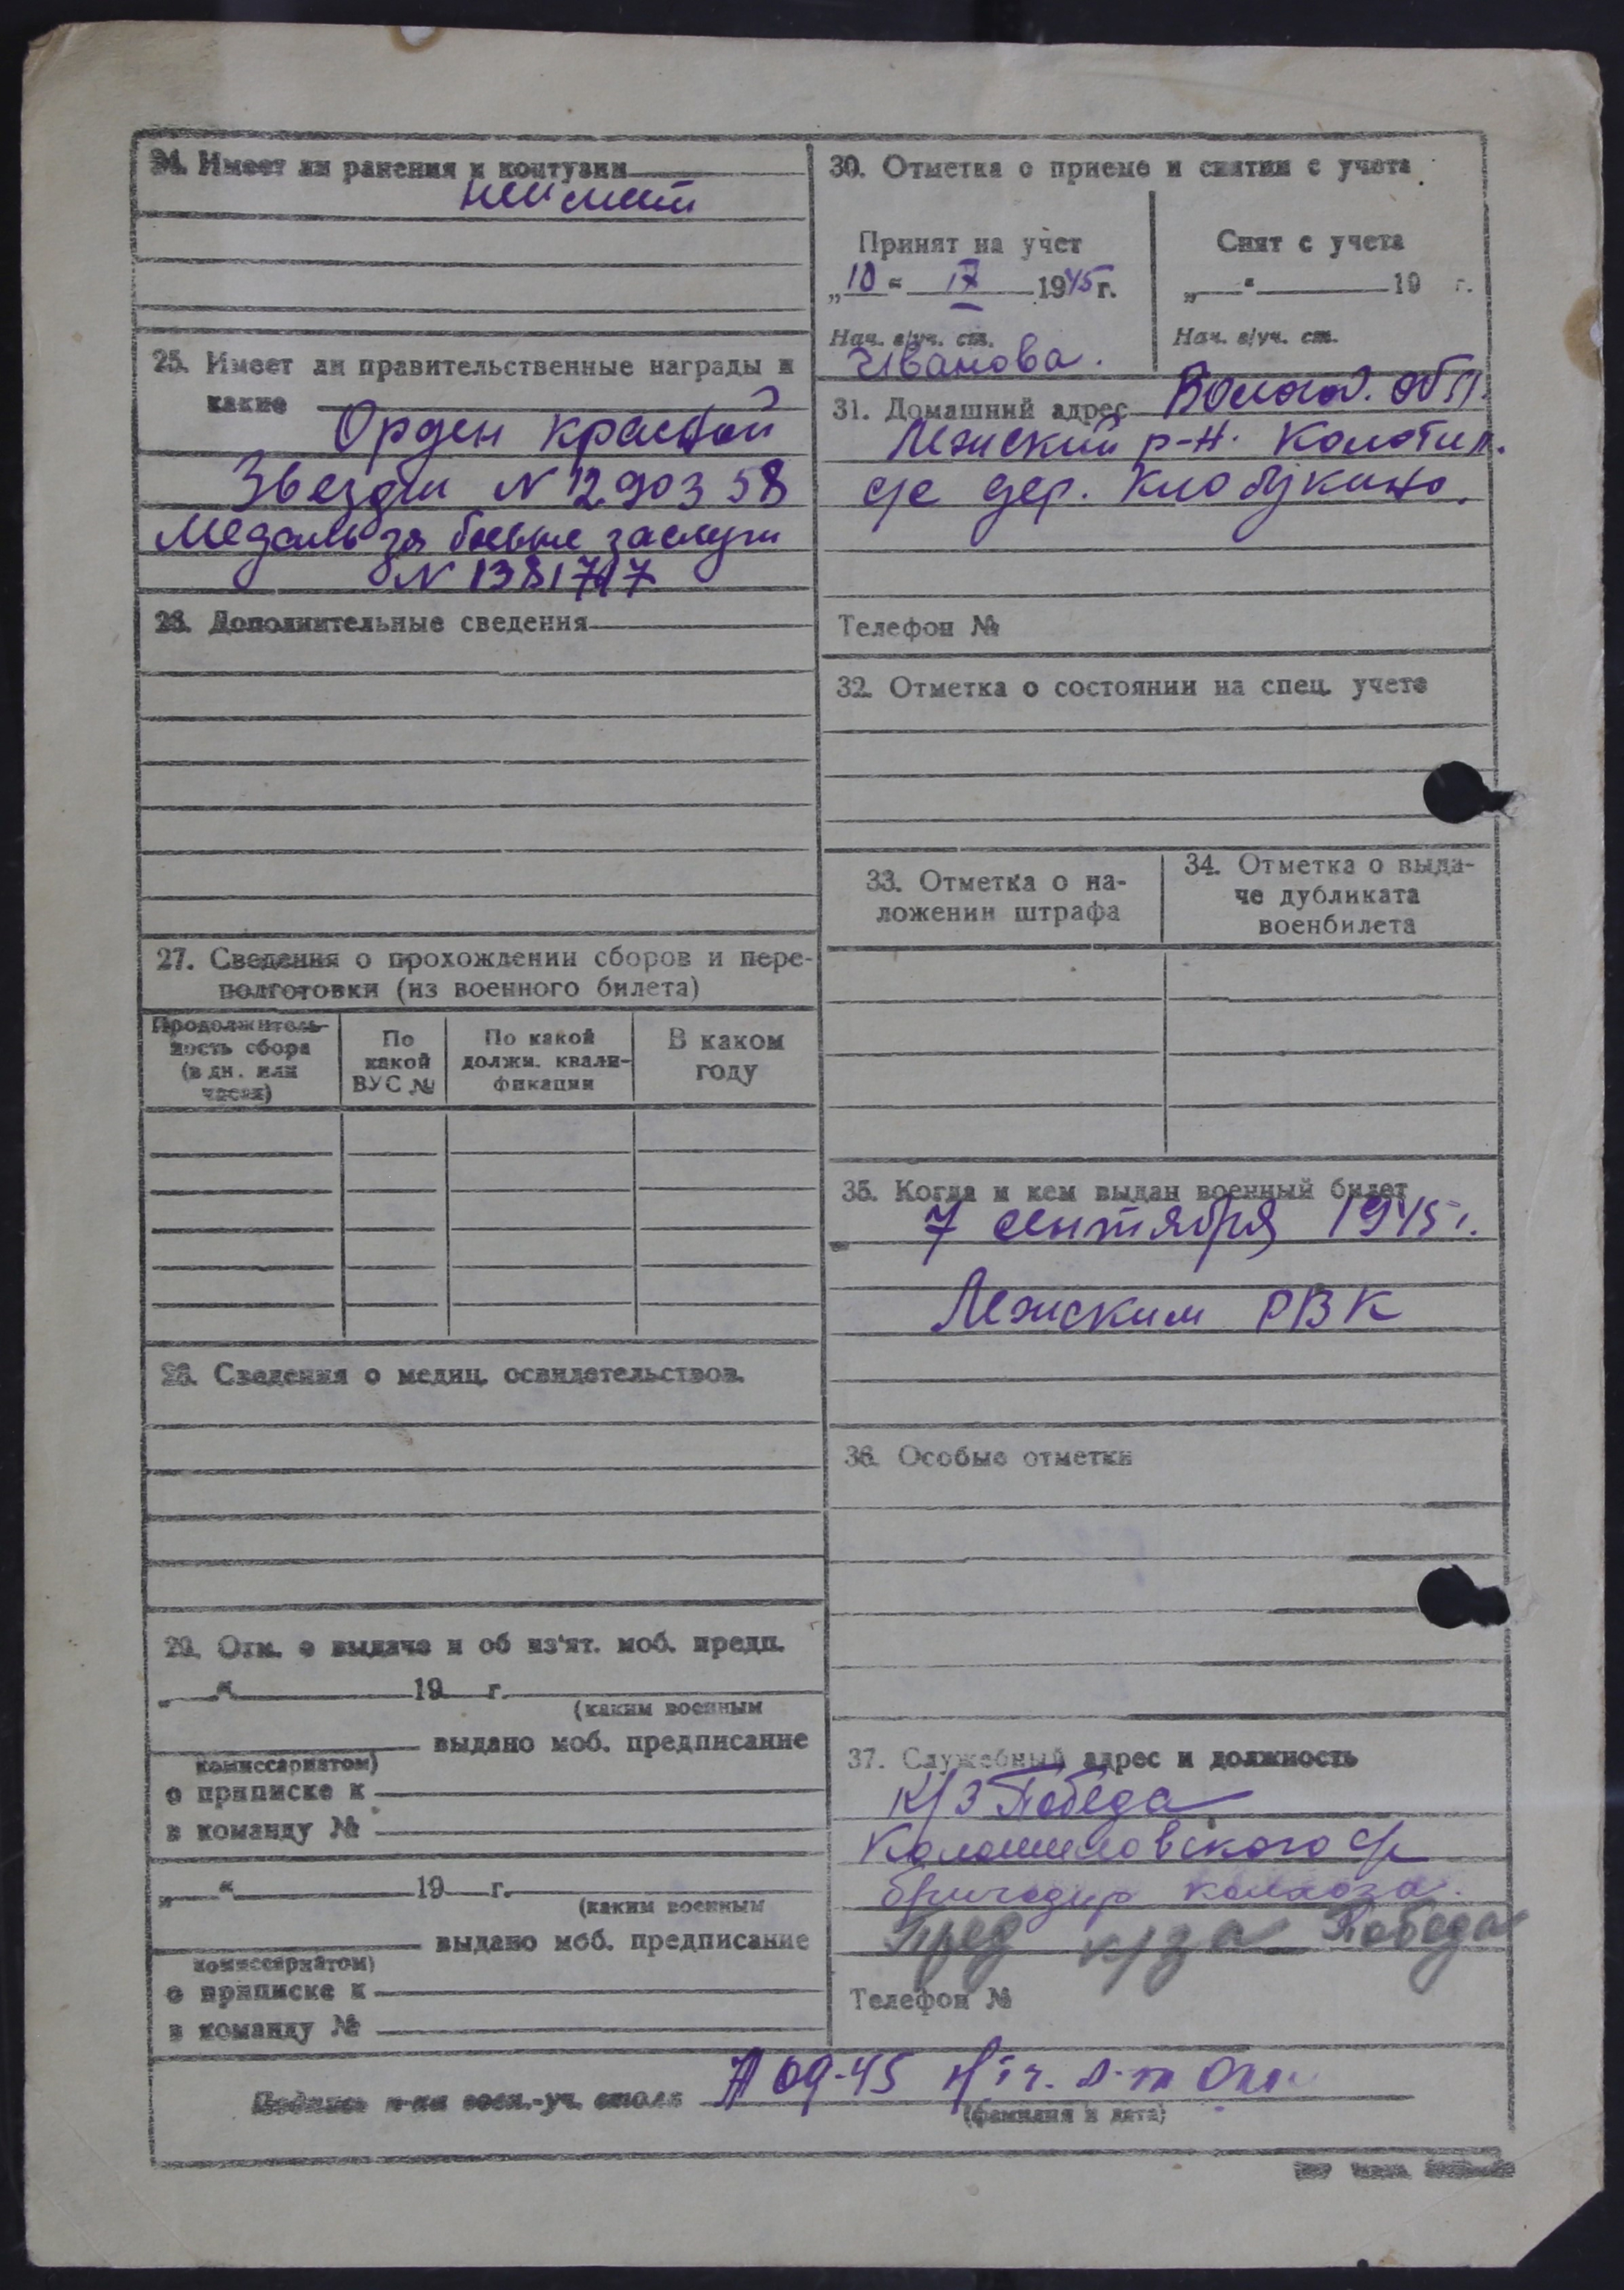 24. Имеет ли ранения и контузии
не имеет
25. Имеет ли правительственные награды и
какие
Орден красной
Звезды N 1290358
Медаль за боевые заслуги
N 1381747
26. Дополнительные сведения
27. Сведения о прохождении сборов и пере-
подготовки (из военного билета)
Продолжитель-
ность сбора
(в дн. или
часах)
По
какой
ВУС №
По какой
должн. квали-
фикации
В каком
году
28. Сведения о медиц. освидетельствов.
29. Отм. о выдаче и об из'ят. моб. предп.
„ “ 19 г.
(каким военным
выдано моб. предписание
комиссариатом)
о приписке к
в команду №
„ “ 19 г.
(каким военным
выдано моб. предписание
комиссариатом)
о приписке к
в команду №
30. Отметка о приеме и снятии с учета
Принят на учет
„10“ IX 1945 г.
Нач. в/уч. ст.
Иванова.
Снят с учета
„ “ 19 г.
Нач. в/уч. ст.
31. Домашний адрес Волого. обл.
Лежский р-н. Колотил.
с/с дер. Клобукино.
Телефон №
32. Отметка о состоянии на спец. учете
33. Отметка о на-
ложении штрафа
34. Отметка о выда-
че дубликата
военбилета
35. Когда и кем выдан военный билет
7 сентября 1945 г.
Лежским РВК
36. Особые отметки
37. Служебный адрес и должность
К/З Победа
с/с
бригадир колхоза.
Пред к/за Победа
Телефон №
Подпись н-ка воен.-уч. стола 09-45
(фамилия и дата)